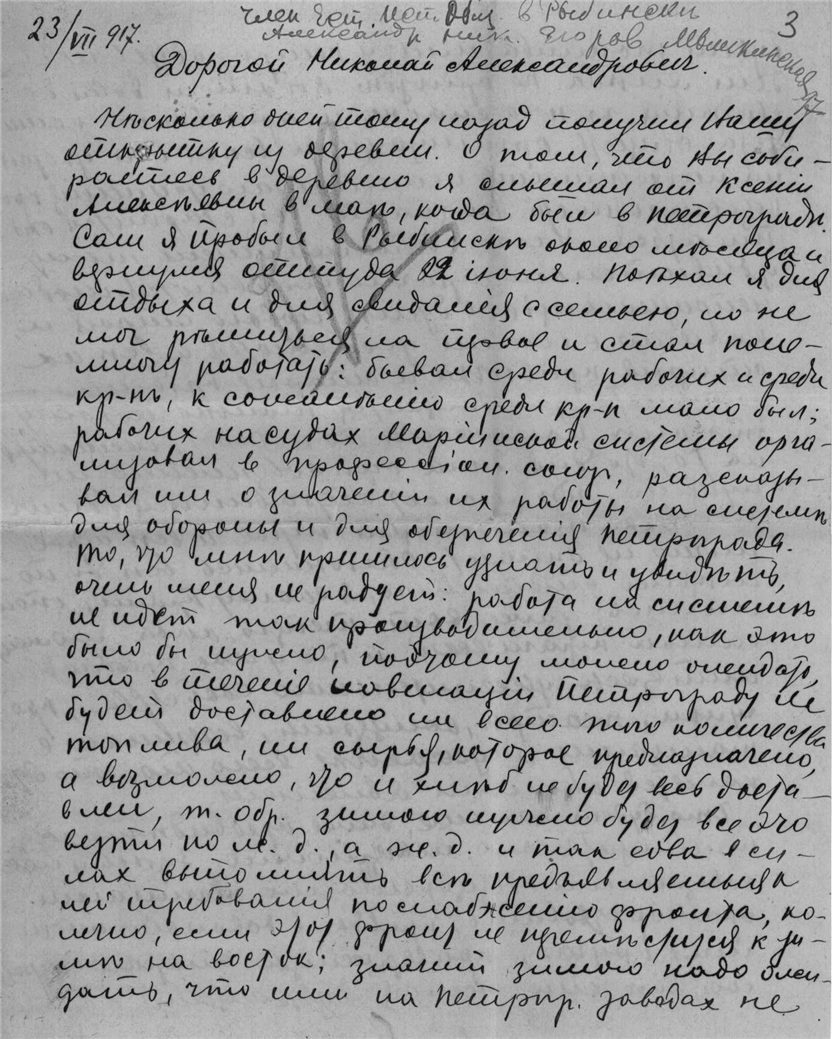 23/VII 917.
член Ест. Ист. Общ. в Рыбинске 3
Александр Ник. Егоров Мышкинская 17
Дорогой Николай Александрович.
Нѣсколько дней тому назад получил Вашу
открытку из деревни. О том, что Вы соби-
раетесь в деревню я слышал от Ксеніи
Алексѣевны в маѣ, когда был в Петроградѣ.
Сам я пробыл в Рыбинскѣ около мѣсяца и
вернулся оттуда 22 іюня. Поѣхал я для
отдыха и для свиданія с семьею, но не
мог рѣшиться на првое и стал поне-
многу работать: бывал среди рабочих и среди
кр-н, к сожалѣнію среди кр-н мало был;
рабочих на судах Маріинской системы орга-
низовал в професcіон. союз, разсказы-
вал им о значеніи их работы на системѣ
для обороны и для обезпеченія Петрограда.
То, что мнѣ пришлось узнать и увидѣть,
очень меня не радует: работа на системѣ
не идет так производительно, как это
было бы нужно, поэтому можно ожидать,
что в теченіе навигаціи Петрограду не
будет доставлено ни всего того количества
топлива, ни сырья, которое предназначено,
а возможно, что и хлѣб не будет весь доста-
влен, т. обр. зимою нужно будет все это
везти по ж. д., а ж. д. и так едва в си-
лах выполнять всѣ предъявляемыя к
ней требованія по снабженію фронта, ко-
нечно, если этот фронт не перемѣстится к зи-
мѣ на восток; значит зимою надо ожи-
дать, что или на петрогр. заводах не